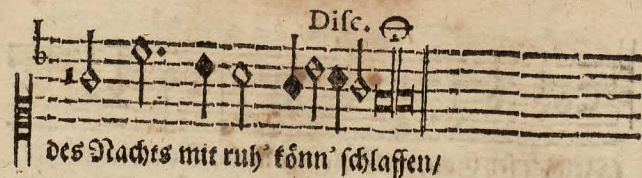 Disc.
des Nachts mit ruh' könn' schlaffen/